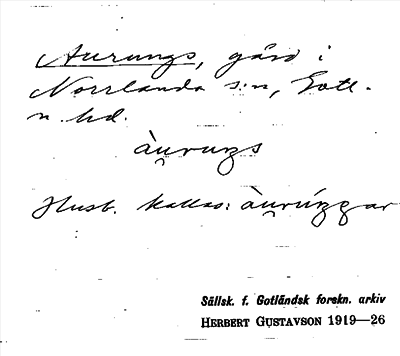 Aurungs, gård i
Norrlanda s:n, Gotl.
n. hd.
àu̯rungs
Husb. kallas: àu̯rúŋgar
Sällsk. f. Gotländsk forskn. arkiv
HERBERT GUSTAVSON 1919—26